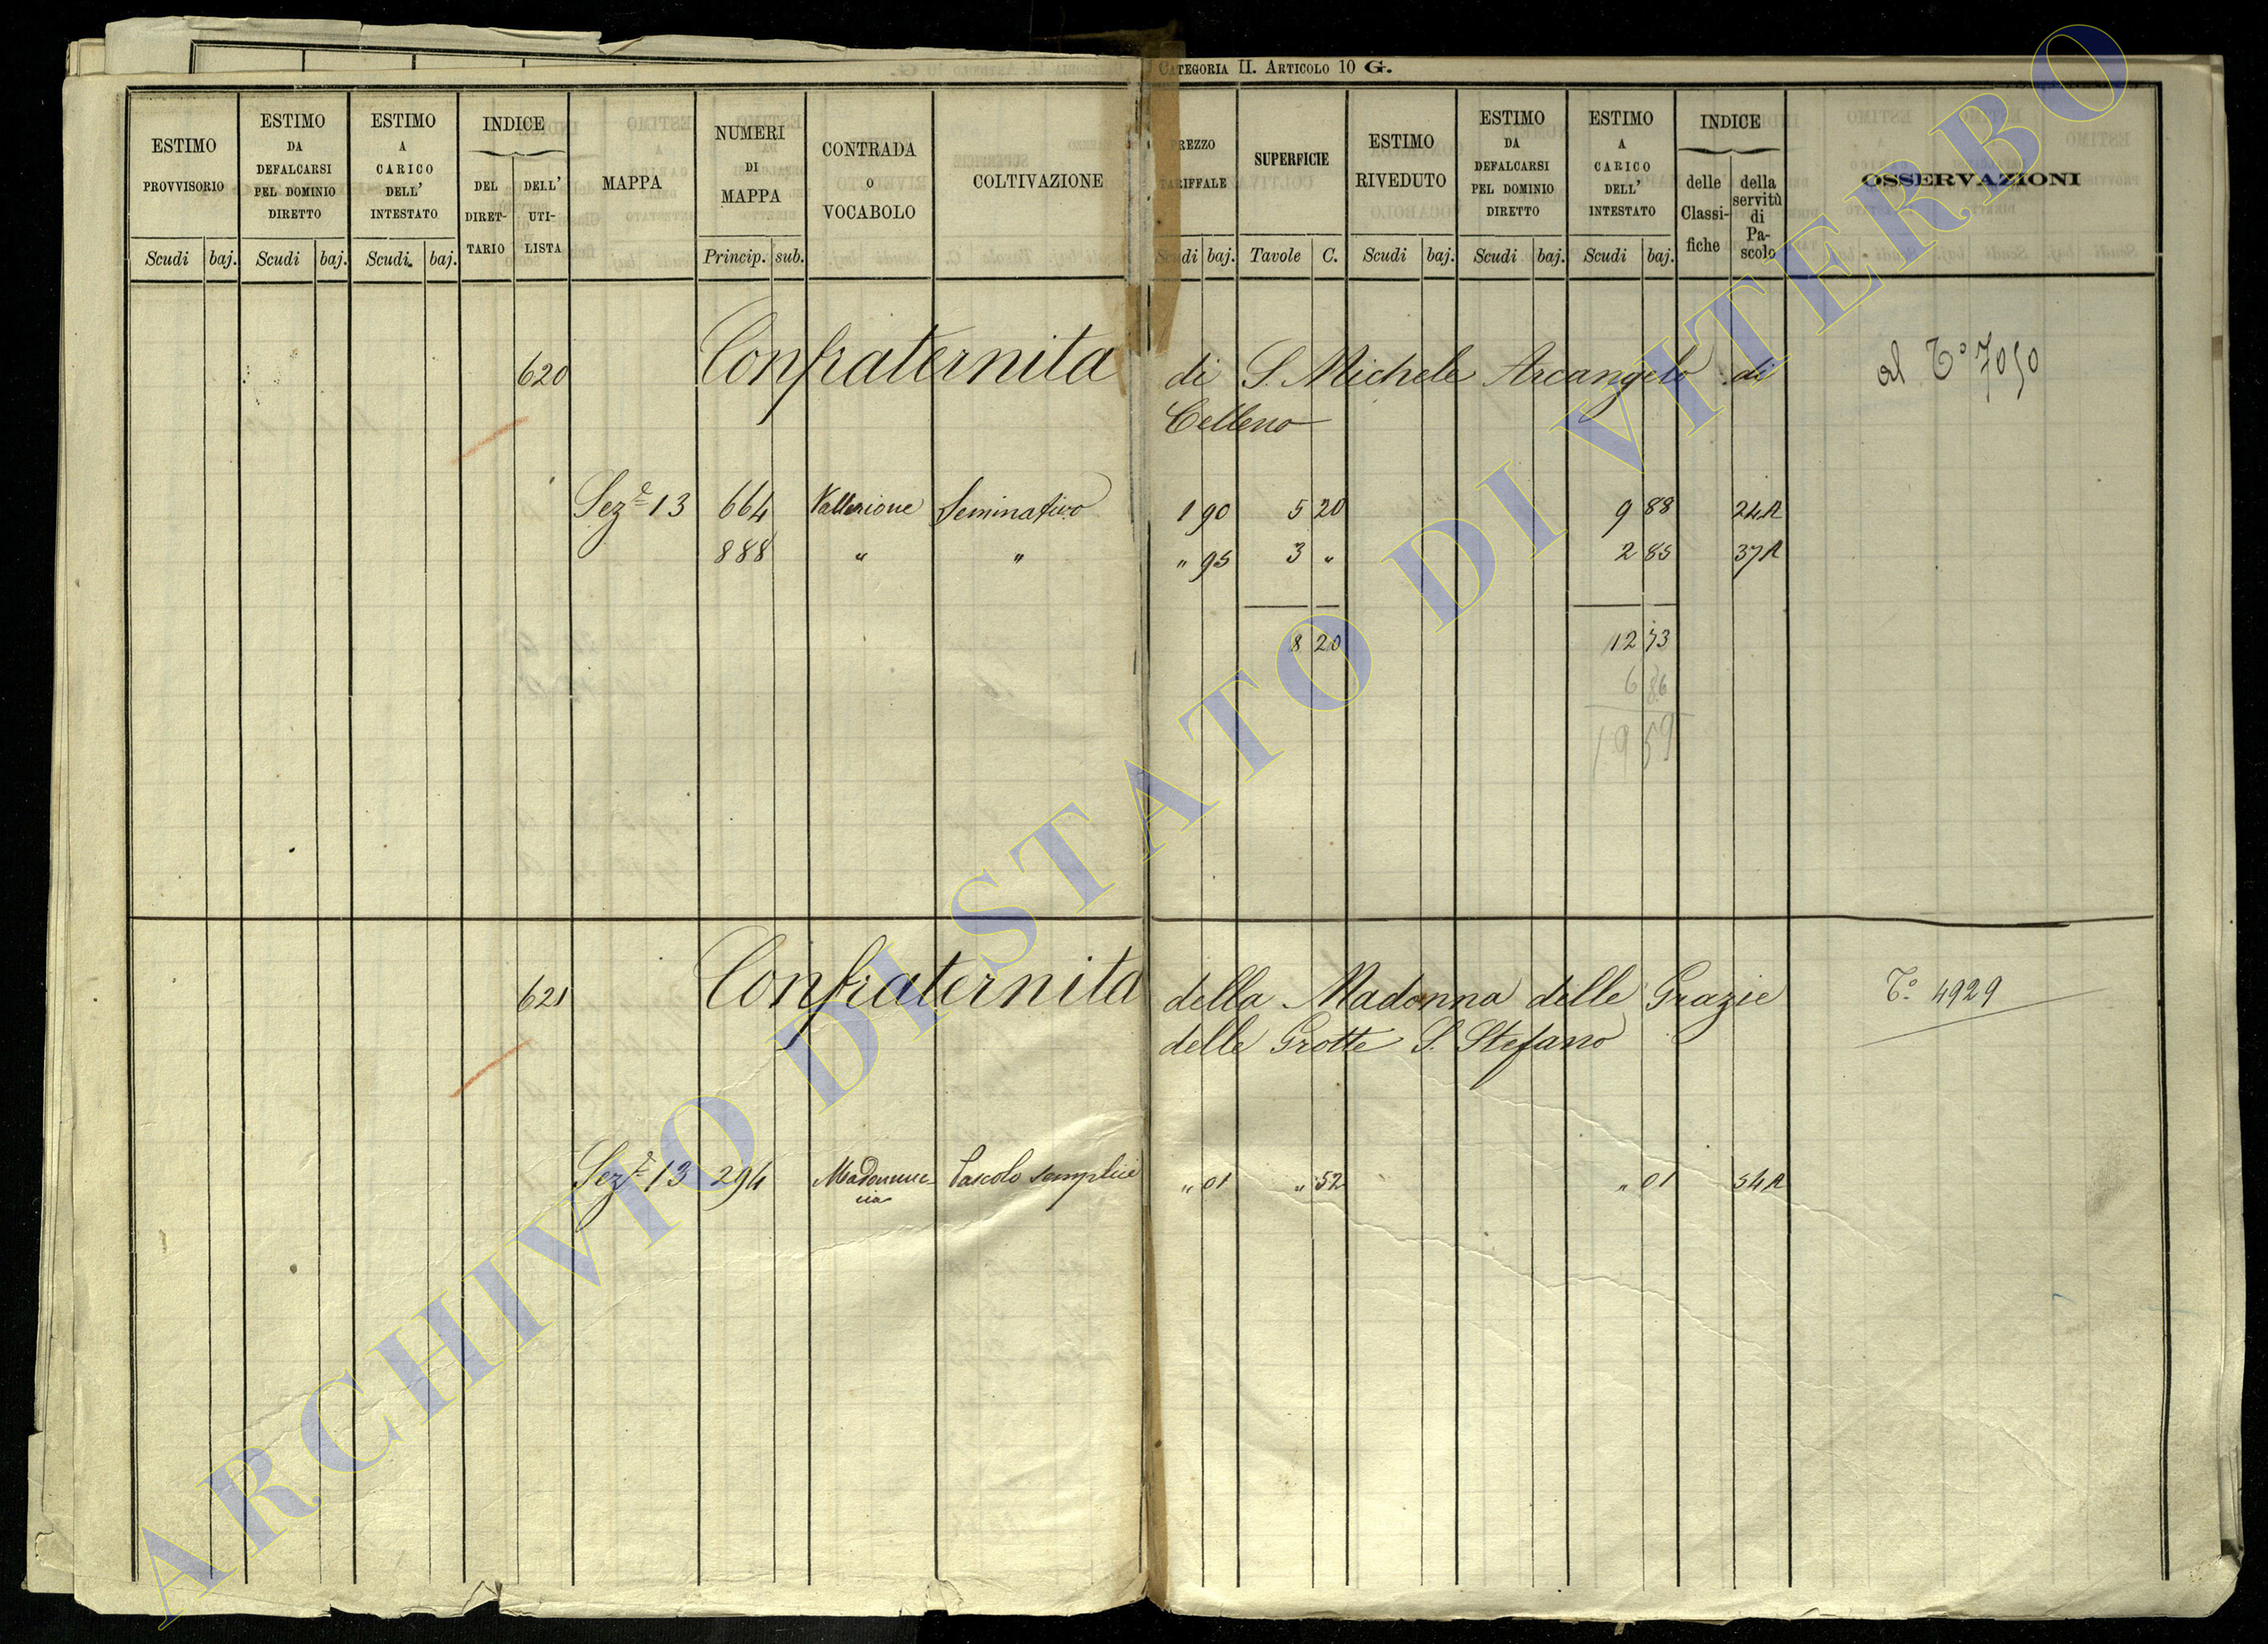 CATEGORIA II. ARTICOLO 10 G.
ESTIMO PROVVISORIO
ESTIMO DA DEFALCARSI PEL DOMINIO DIRETTO
ESTIMO A CARICO DELL' INTESTATO
INDICE
DEL DIRET-TARIO
DELL' UTI-LISTA
MAPPA
NUMERI DI MAPPA
CONTRADA O VOCABOLO
COLTIVAZIONE
PREZZO TARIFFALE
SUPERFICIE
ESTIMO RIVEDUTO
ESTIMO DA DEFALCARSI PEL DOMINIO DIRETTO
ESTIMO A CARICO DELL' INTESTATO
INDICE
delle Classi-fiche
della servitù di Pa-scolo
OSSERVAZIONI
Scudi baj. Scudi baj. Scudi. baj. Princip. sub. Scudi baj. Tavole C. Scudi baj. Scudi baj. Scudi baj.
620 Confraternita di S. Michele Arcangelo di al T.° 7050
Celleno
Sez.e 13 664 Seminativo 1 90 5 20 9 88 24A
888 " " " 95 3 " 2 85 37A
8 20 12 73
6 86
19 59
621 Confraternita della Madonna delle Grazie T.° 4929
delle Grotte S. Stefano
Sez.e 13 294 Madonnuc- Pascolo semplice " 01 " 52 " 01 54A
cia
ARCHIVIO DI STATO DI VITERBO